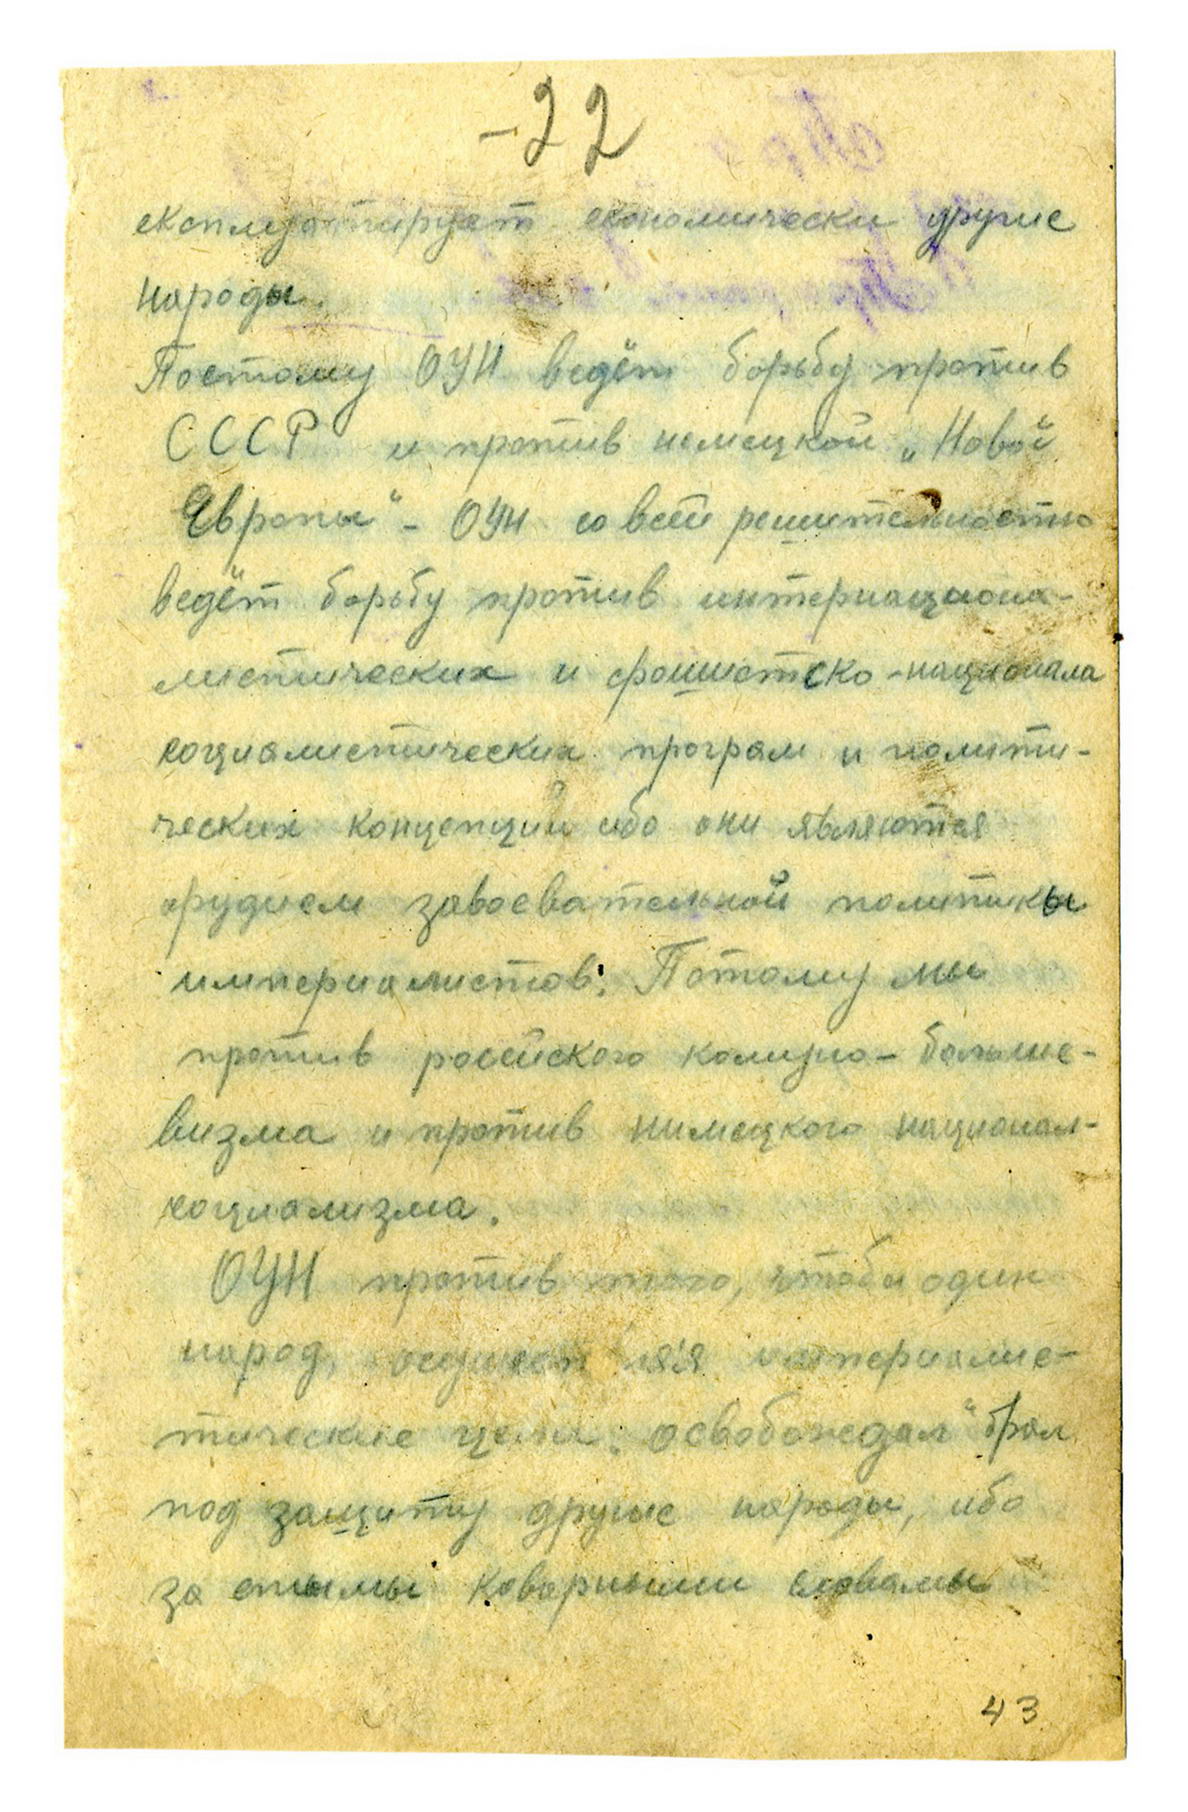 -22
експлуатирует економически другие
народы.
Поетому ОУН ведёт борьбу против
СССР и против немецкой „Новой
Европы" - ОУН со всей решительностю
ведёт борьбу против интернациона-
листических и фашистско-национала
социалистических програм и полити-
ческих концепций ибо они являются
орудием завоевательной политикы
империалистов. Потому мы
против росейского комуно-больше-
визма и против нимецкого национал-
социализма.
ОУН против того, чтобы один
народ, империалис-
тические цели „освобождал" брал
под защиту другие народы, ибо
за етымы коварными словамы
43